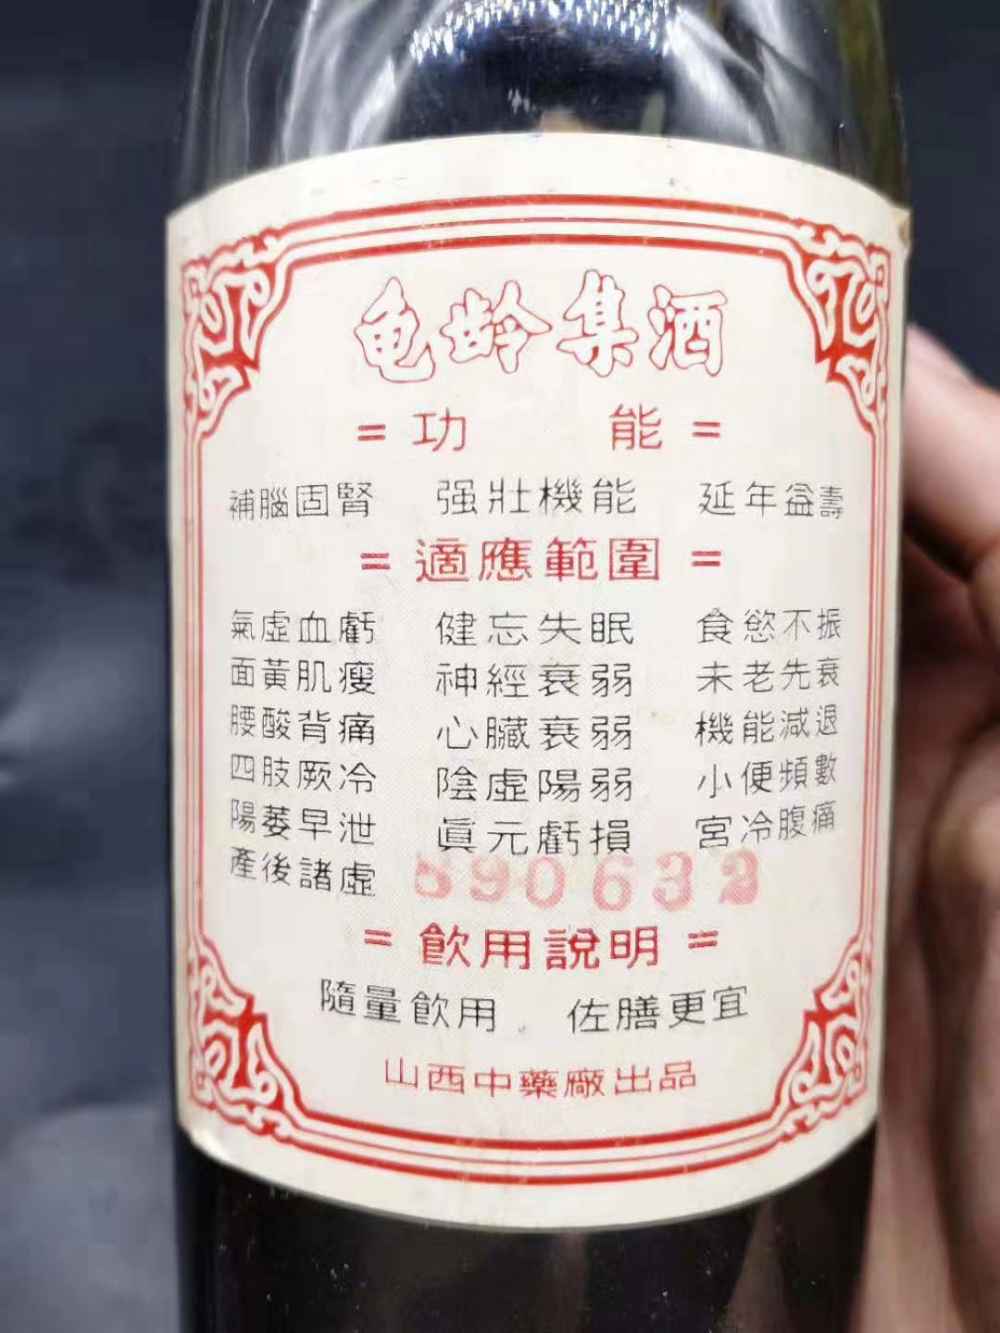 龟龄集酒
= 功 能 =
補腦固腎 强壯機能 延年益壽
= 適應範圍 =
氣虛血虧 健忘失眠 食慾不振
面黃肌瘦 神經衰弱 未老先衰
腰酸背痛 心臟衰弱 機能減退
四肢厥冷 陰虛陽弱 小便頻數
陽萎早泄 眞元虧損 宮冷腹痛
產後諸虛
590632
= 飲用說明 =
隨量飲用 佐膳更宜
山西中藥廠出品